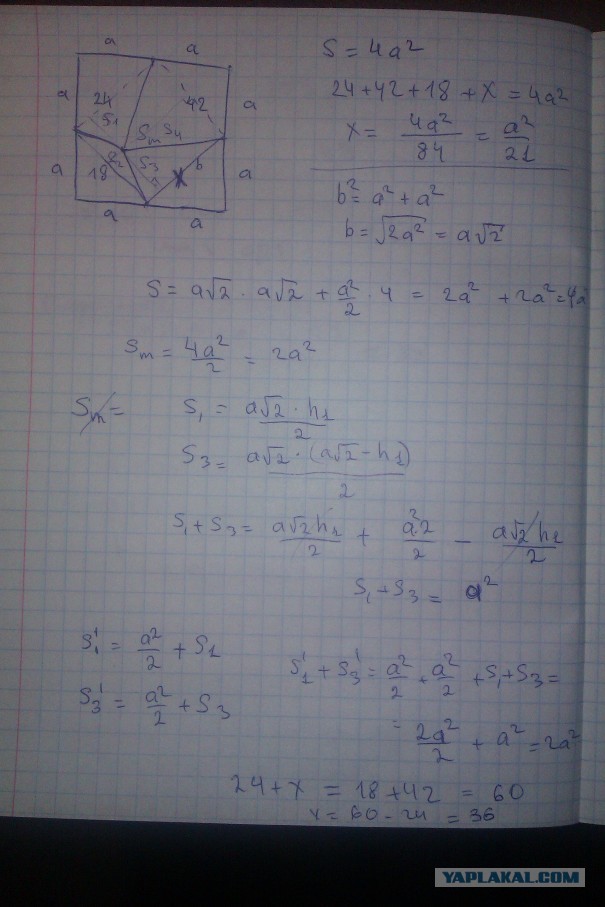 a a
a 24 42 a
S1 Sm S4
18 S2 S3 b x
a a
a a
S = 4a²
24+42+18+X=4a²
X= 4a²/84 = a²/21
b²= a²+a²
b=√2a² = a√2
S= a√2 · a√2 + a²/2 · 4 = 2a² +2a²=4a
Sm = 4a²/2 = 2a²
Sm= S1 = a√2 · h1/2
S3= a√2·(a√2-h1)/2
S1+S3= a√2h1/2 + a²2/2 - a√2 h1/2
S1+S3= a²
S1' = a²/2 + S1
S3' = a²/2 + S3
S1'+S3'= a²/2 + a²/2 +S1+S3=
= 2a²/2 + a² =2a²
24+x = 18+42 = 60
x= 60-24 = 36
YAPLAKAL.COM